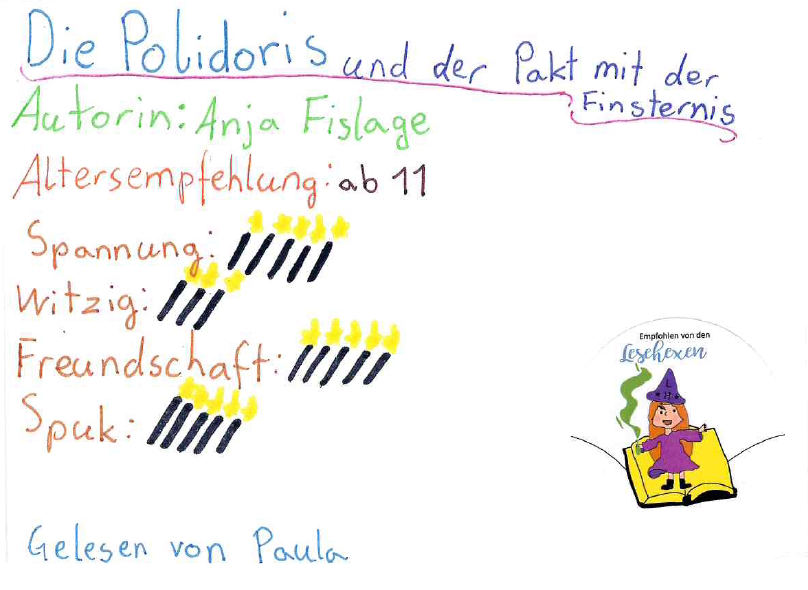 Die Polidoris und der Pakt mit der
Einsternis
Autorin: Anja Fislage
Altersempfehlung: ab 11
Spannung:
Witzig:
Freundschaft:
Spuk:
Empfohlen von den
Lesehexen
L
H
Gelesen von Paula